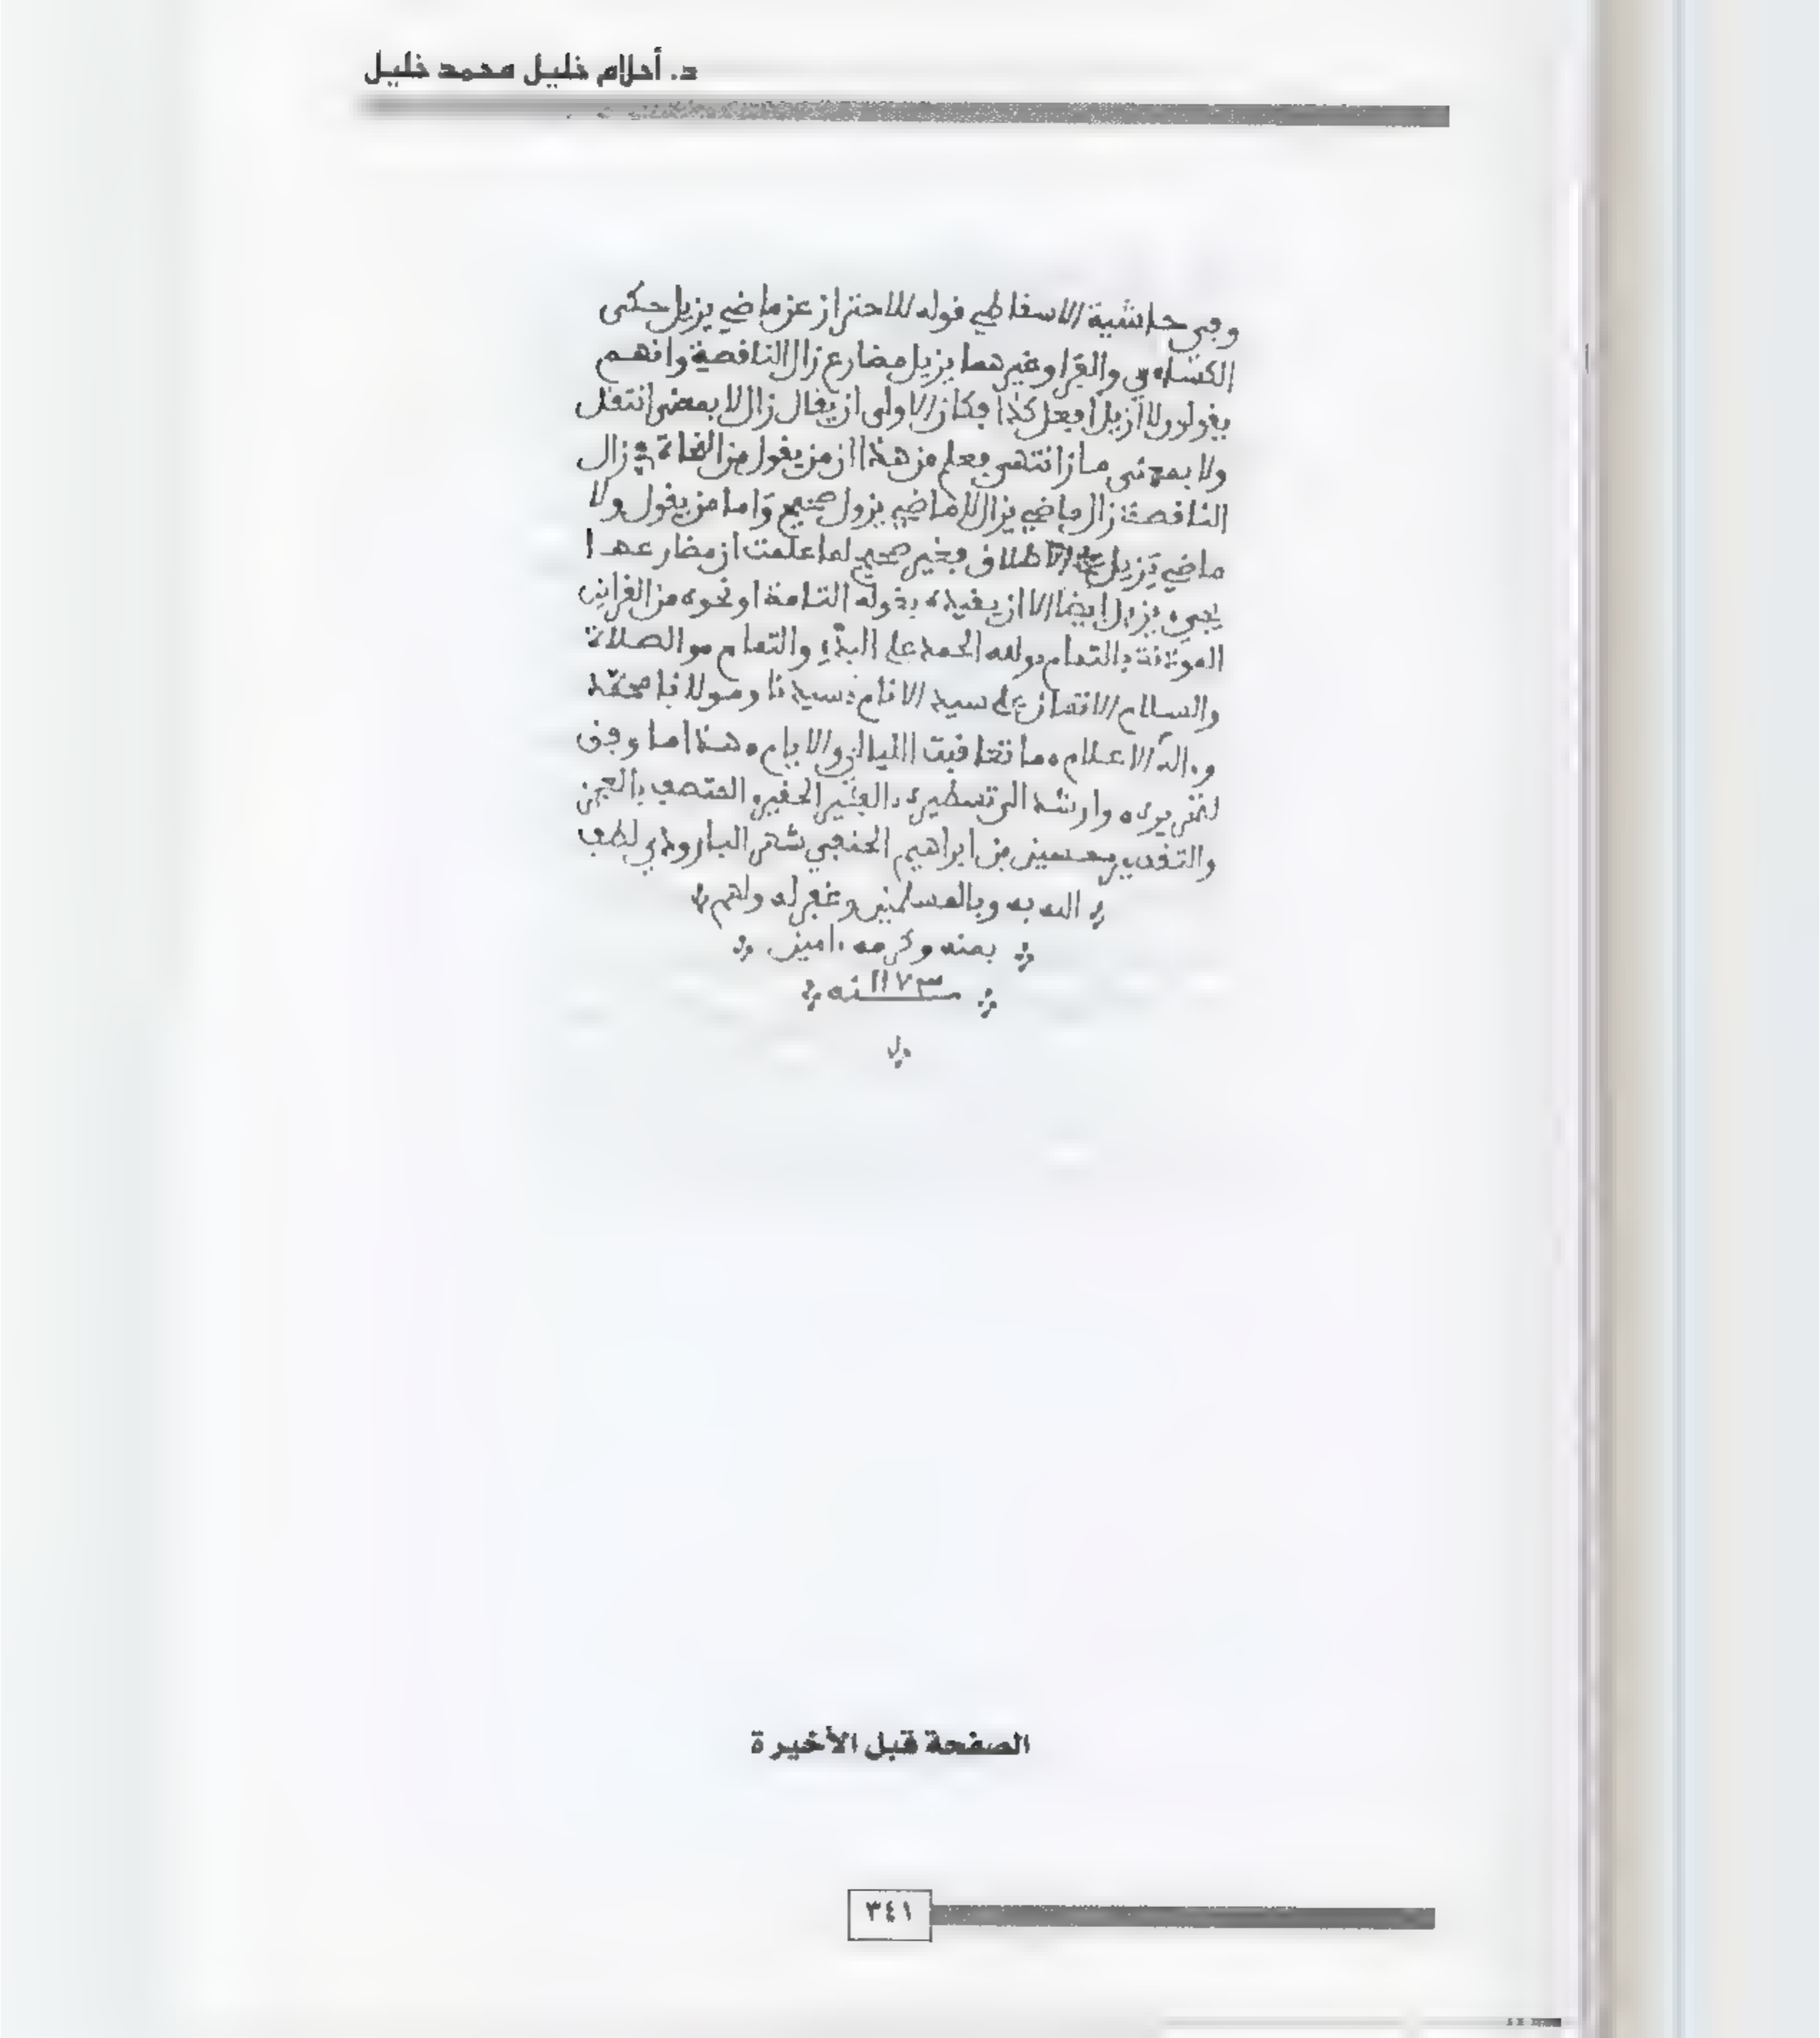 د. أحلام خليل محمد خليل
وفي حاشية الاسقاطي قوله للاحتراز عن ماضي يزيل حكى
الكسائي والفرا وغيرهما يزيل مضارع زال الناقصة وانهم
يقولون لا ازيل افعل كذا فكان الاولى ان يقال زال لا بمعنى انتقل
ولا بمعنى ماز انتهى فعلم من هذا ان من يقول من النحاة زال
الناقصة زال ماضي يزال لا ماضي يزول صحيح واما من يقول ولا
ماضي يزيل على الاطلاق فغير صحيح لما علمت ان مضارعهـا
يجيء يزيل ايضا الا ان يقيده بقوله التامة او نحوه من القراين
الموذنة بالتمام ولله الحمد على البدء والتمام والصلاة
والسلام الاتمان على سيد الانام سيدنا ومولانا محمد
وءاله الاعلام ما تعاقبت الليالي والايام هذا ما وفق
لتحريره وارشد الى تسطيره العبد الفقير الحقير المتصف بالعجز
والتقصير حسين بن ابراهيم الحنفي شهر البارودي لطف
الله به وبالمسلمين وغفر له ولهم
بمنه وكرمه ءامين
سنه ١١٧٣
الصفحة قبل الأخيرة
٣٤١